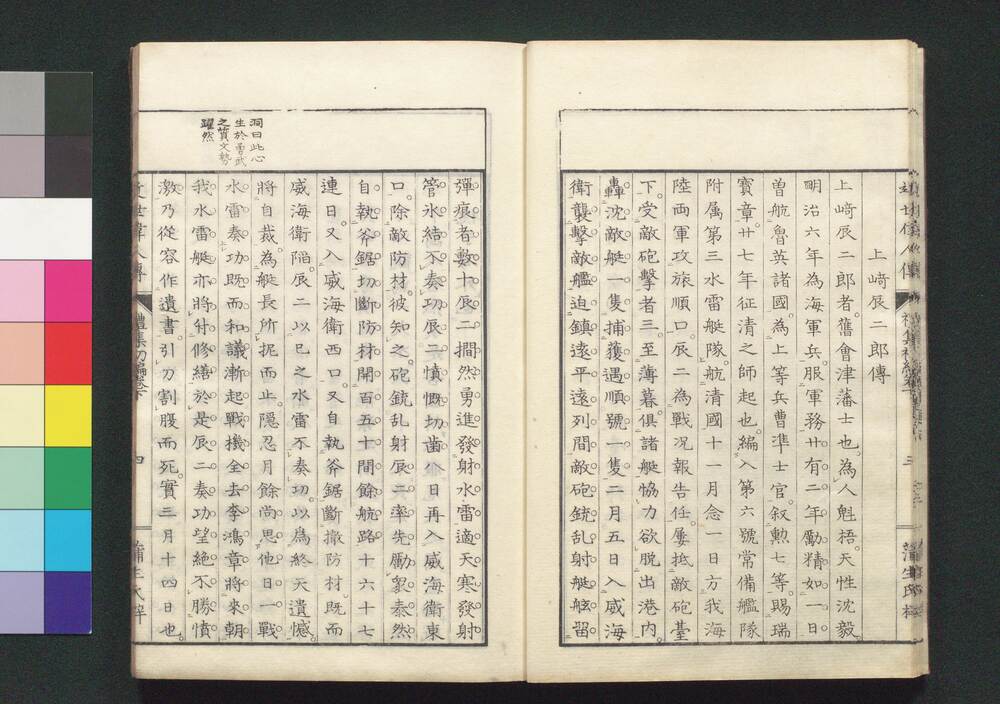 上﨑辰二郎傳
上﨑辰二郎者舊會津藩士也為人魁梧天性沈毅
明治六年為海軍兵服軍務廿有二年勵精如一日
曽航魯英諸國為上等兵曹準士官叙勲七等賜瑞
寳章廿七年征清之師起也編入第六號常備艦隊
附属第三水雷艇隊航清國十一月念一日方我海
陸両軍攻旅順口辰二為戰况報告任屢抵敵砲䑓
下受敵砲擊者三至薄暮俱諸艇恊力欲脱出港内
轟沈敵艇一隻捕獲遇順號一隻二月五日入威海
衛襲擊敵艦迫鎮遠平遠列間敵砲銃乱射艇舷留
彈痕者數十辰二擱然勇進發射水雷適天寒發射
管氷結不奏功辰二憤慨切齒仝日再入威海衛東
口除敵防材彼知之砲銃乱射辰二率先勵衆泰然
自執斧鋸切斷防材開百五十間餘航路十六十七
連日又入威海衛西口又自執斧鋸斷撤防材既而
威海衛陥辰二以己之水雷不奏功以為終天遺憾
將自裁為艇長所扼而止隠忍月餘尚思他日一戰
水雷奏功既而和議漸起戰機全去李鴻章將来朝
我水雷艇亦將付修繕於是辰二奏功望絶不勝憤
激乃従容作遺書引刀割腹而死實三月十四日也
洞曰此心
生於勇武
之質文勢
躍然
四